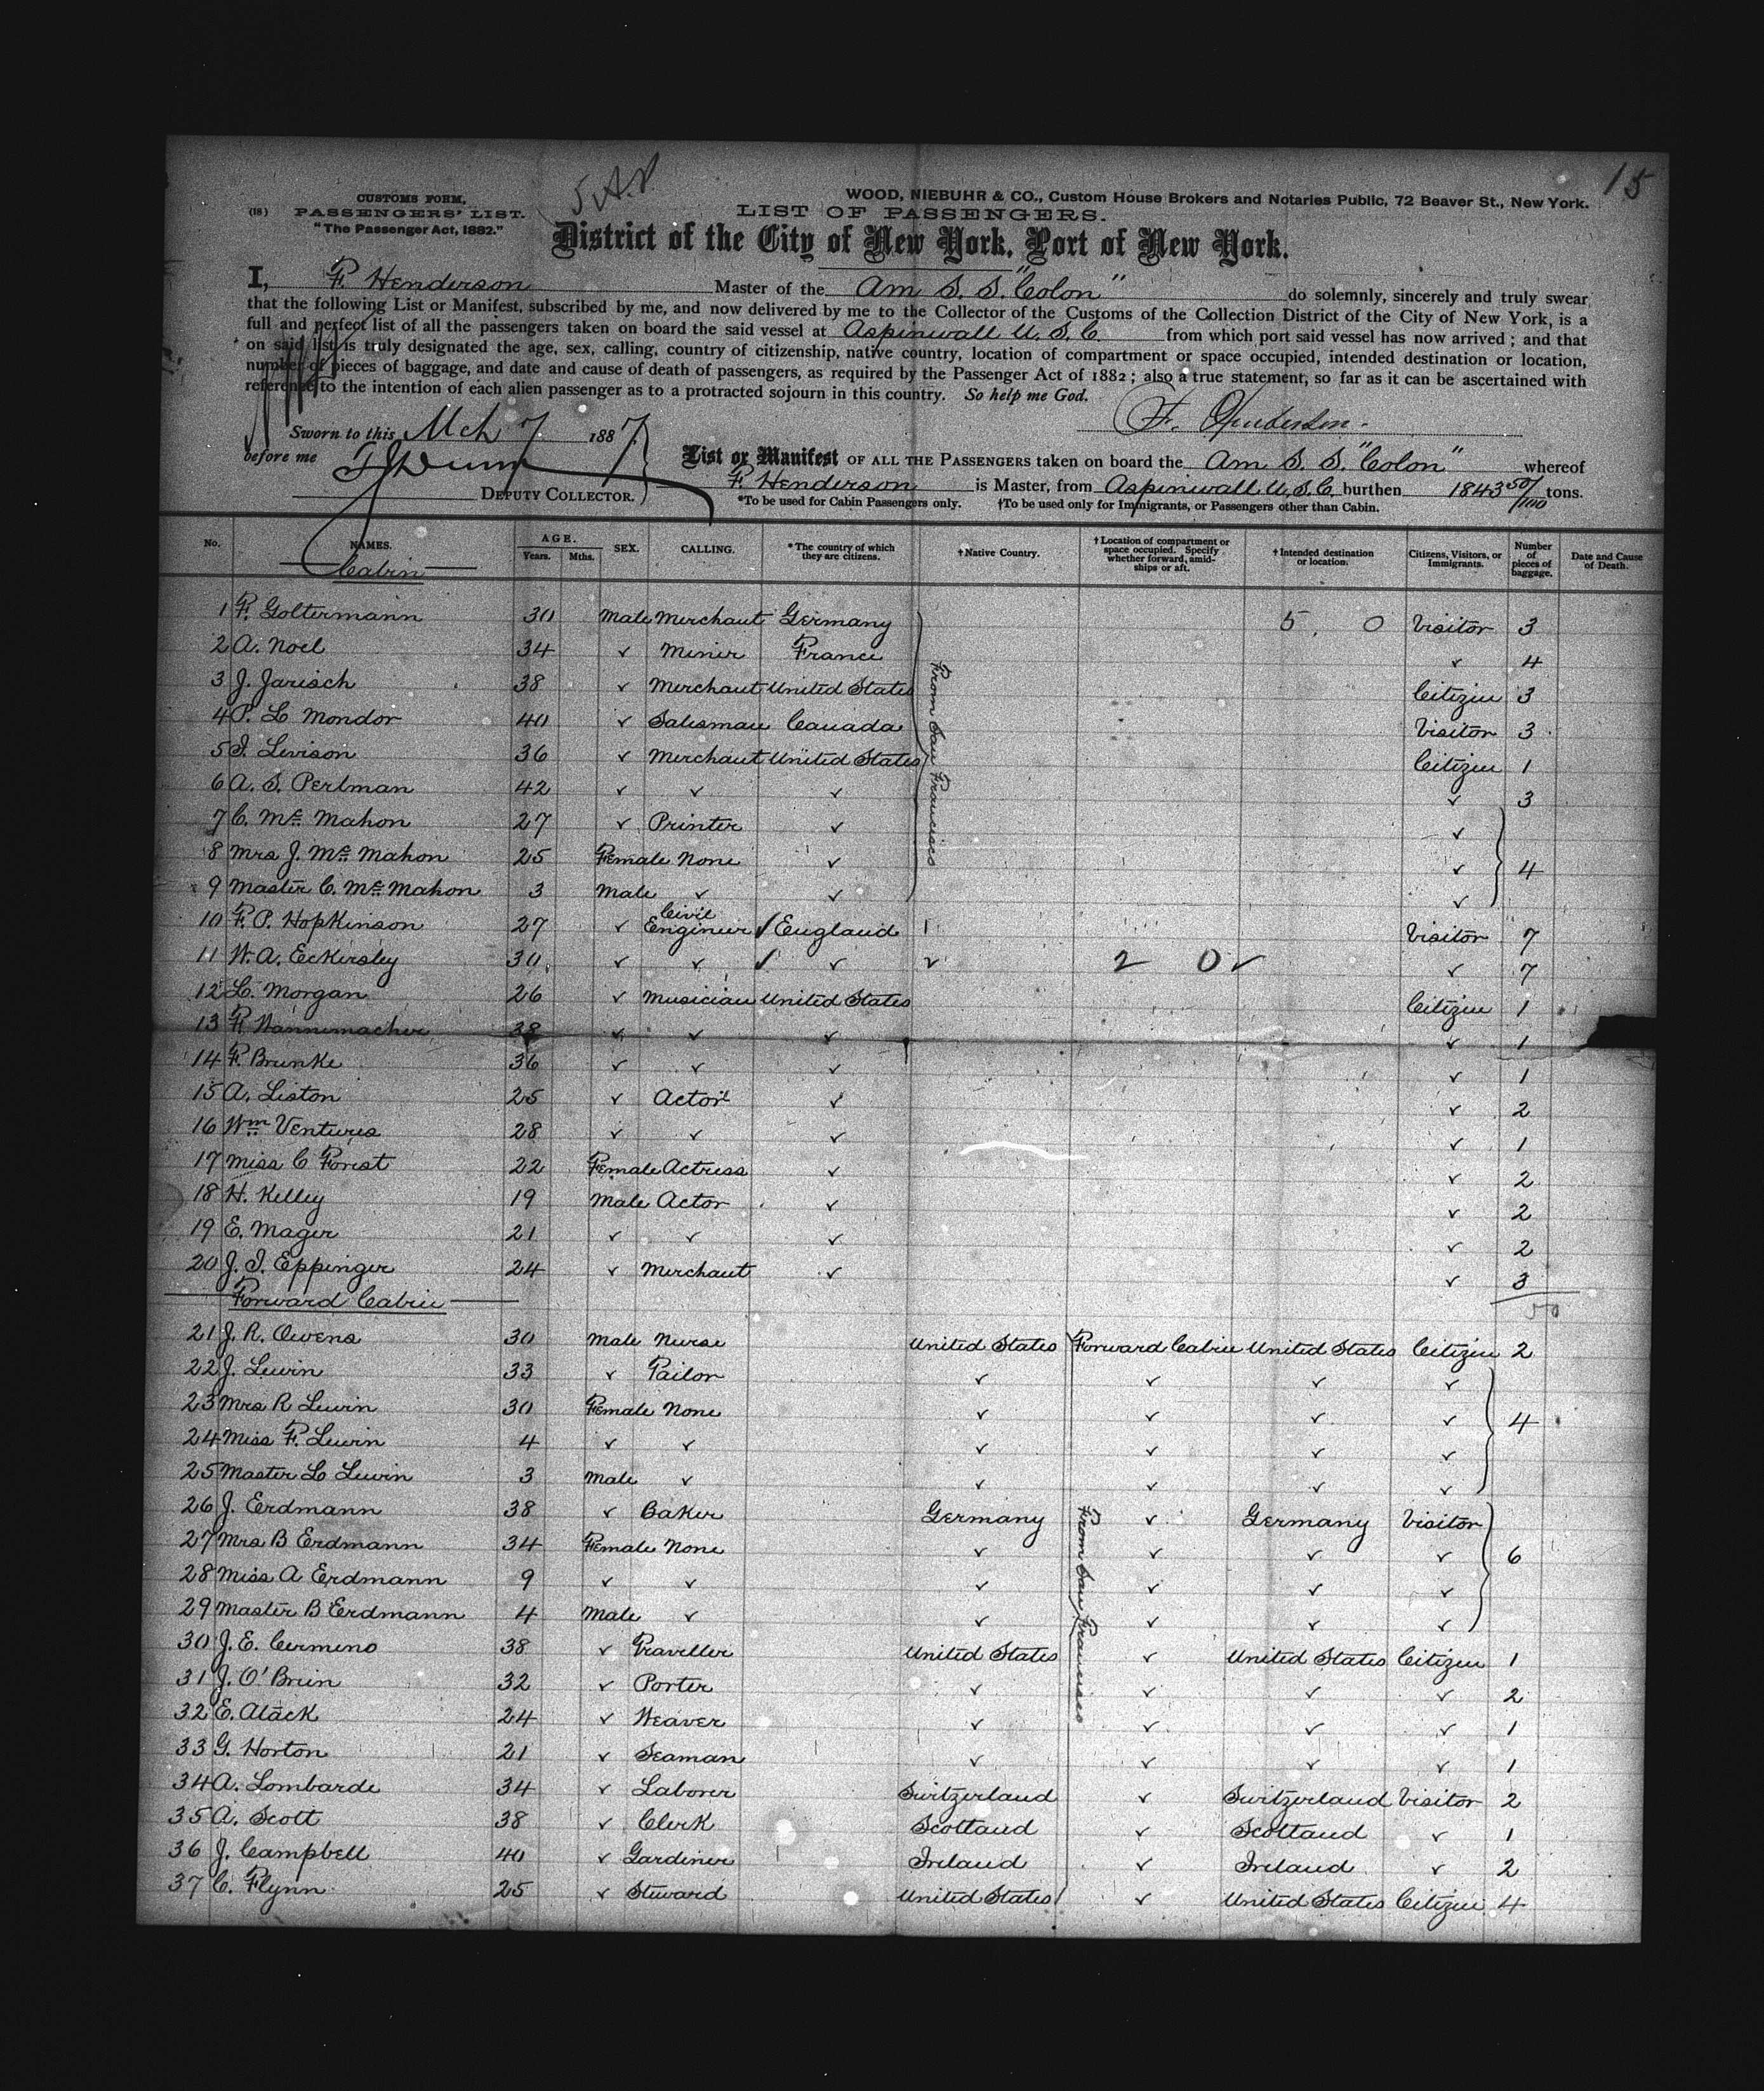 15
5 A.P.
WOOD, NIEBUHR & CO., Custom House Brokers and Notaries Public, 72 Beaver St., New York.
CUSTOMS FORM,
(18) PASSENGERS' LIST.
"The Passenger Act, 1882."
LIST OF PASSENGERS.
District of the City of New York, Port of New York.
I, F. Henderson Master of the Am S. S. "Colon" do solemnly, sincerely and truly swear
that the following List or Manifest, subscribed by me, and now delivered by me to the Collector of the Customs of the Collection District of the City of New York, is a
full and perfect list of all the passengers taken on board the said vessel at Aspinwall U. S. C. from which port said vessel has now arrived; and that
on said list is truly designated the age, sex, calling, country of citizenship, native country, location of compartment or space occupied, intended destination or location,
number of pieces of baggage, and date and cause of death of passengers, as required by the Passenger Act of 1882; also a true statement, so far as it can be ascertained with
reference to the intention of each alien passenger as to a protracted sojourn in this country. So help me God.
F. Henderson.
Sworn to this Mch 7 1887
before me
DEPUTY COLLECTOR.
List or Manifest OF ALL THE PASSENGERS taken on board the Am S. S. "Colon" whereof
F. Henderson is Master, from Aspinwall U. S. C. burthen 1843 50/100 tons.
*To be used for Cabin Passengers only. †To be used only for Immigrants, or Passengers other than Cabin.
No. NAMES. AGE. Years. Mths. SEX. CALLING. *The country of which they are citizens. †Native Country. †Location of compartment or space occupied. Specify whether forward, amidships or aft. †Intended destination or location. Citizens, Visitors, or Immigrants. Number of pieces of baggage. Date and Cause of Death.
Cabin
1 F. Goltermann 30 Male Merchant Germany 5. 0 Visitor 3
2 A. Noel 34 ✓ Miner France ✓ 4
3 J. Jarisch 38 ✓ Merchant United States Citizen 3
4 P. L Mondor 40 ✓ Salesman Canada Visitor 3
5 I. Levison 36 ✓ Merchant United States Citizen 1
6 A. S. Perlman 42 ✓ ✓ ✓ ✓ 3
7 C. Mc Mahon 27 ✓ Printer ✓ ✓
8 Mrs J. Mc Mahon 25 Female None ✓ ✓ 4
9 Master C. Mc Mahon 3 Male ✓ ✓ ✓
From San Francisco
10 F. P. Hopkinson 27 ✓ Civil Engineer ✓ England Visitor 7
11 W. A. Eckersley 30 ✓ ✓ ✓ ✓ ✓ 2 0 ✓ ✓ 7
12 L. Morgan 26 ✓ Musician United States Citizen 1
13 F. Wannemacher 38 ✓ ✓ ✓ ✓ 1
14 F. Brunke 36 ✓ ✓ ✓ ✓ 1
15 A. Liston 25 ✓ Actor ✓ ✓ 2
16 Wm Ventures 28 ✓ ✓ ✓ ✓ 1
17 Miss C Forest 22 Female Actress ✓ ✓ 2
18 H. Kelley 19 Male Actor ✓ ✓ 2
19 E. Mager 21 ✓ ✓ ✓ ✓ 2
20 J. I. Eppinger 24 ✓ Merchant ✓ ✓ 3
50
Forward Cabin
21 J. R. Owens 30 Male Nurse United States Forward Cabin United States Citizen 2
22 J. Lewin 33 ✓ Tailor ✓ ✓ ✓ ✓
23 Mrs R Lewin 30 Female None ✓ ✓ ✓ ✓ 4
24 Miss F. Lewin 4 ✓ ✓ ✓ ✓ ✓ ✓
25 Master L Lewin 3 Male ✓ ✓ ✓ ✓ ✓
26 J. Erdmann 38 ✓ Baker Germany ✓ Germany Visitor
27 Mrs B Erdmann 34 Female None ✓ ✓ ✓ ✓ 6
28 Miss A Erdmann 9 ✓ ✓ ✓ ✓ ✓ ✓
29 Master B Erdmann 4 Male ✓ ✓ ✓ ✓ ✓
From San Francisco
30 J. E. Cermeno 38 ✓ Traveller United States ✓ United States Citizen 1
31 J. O'Brien 32 ✓ Porter ✓ ✓ ✓ ✓ 2
32 E. Alack 24 ✓ Weaver ✓ ✓ ✓ ✓ 1
33 G. Horton 21 ✓ Seaman ✓ ✓ ✓ ✓ 1
34 A. Lombarde 34 ✓ Laborer Switzerland ✓ Switzerland Visitor 2
35 A. Scott 38 ✓ Clerk Scotland ✓ Scotland ✓ 1
36 J. Campbell 40 ✓ Gardener Ireland ✓ Ireland ✓ 2
37 C. Flynn 25 ✓ Steward United States ✓ United States Citizen 4